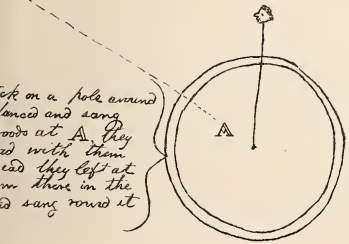 ck on a pole around
danced and sang
oods at A, they
rd with them
ead they left at
m there in the
ed sang round it
A